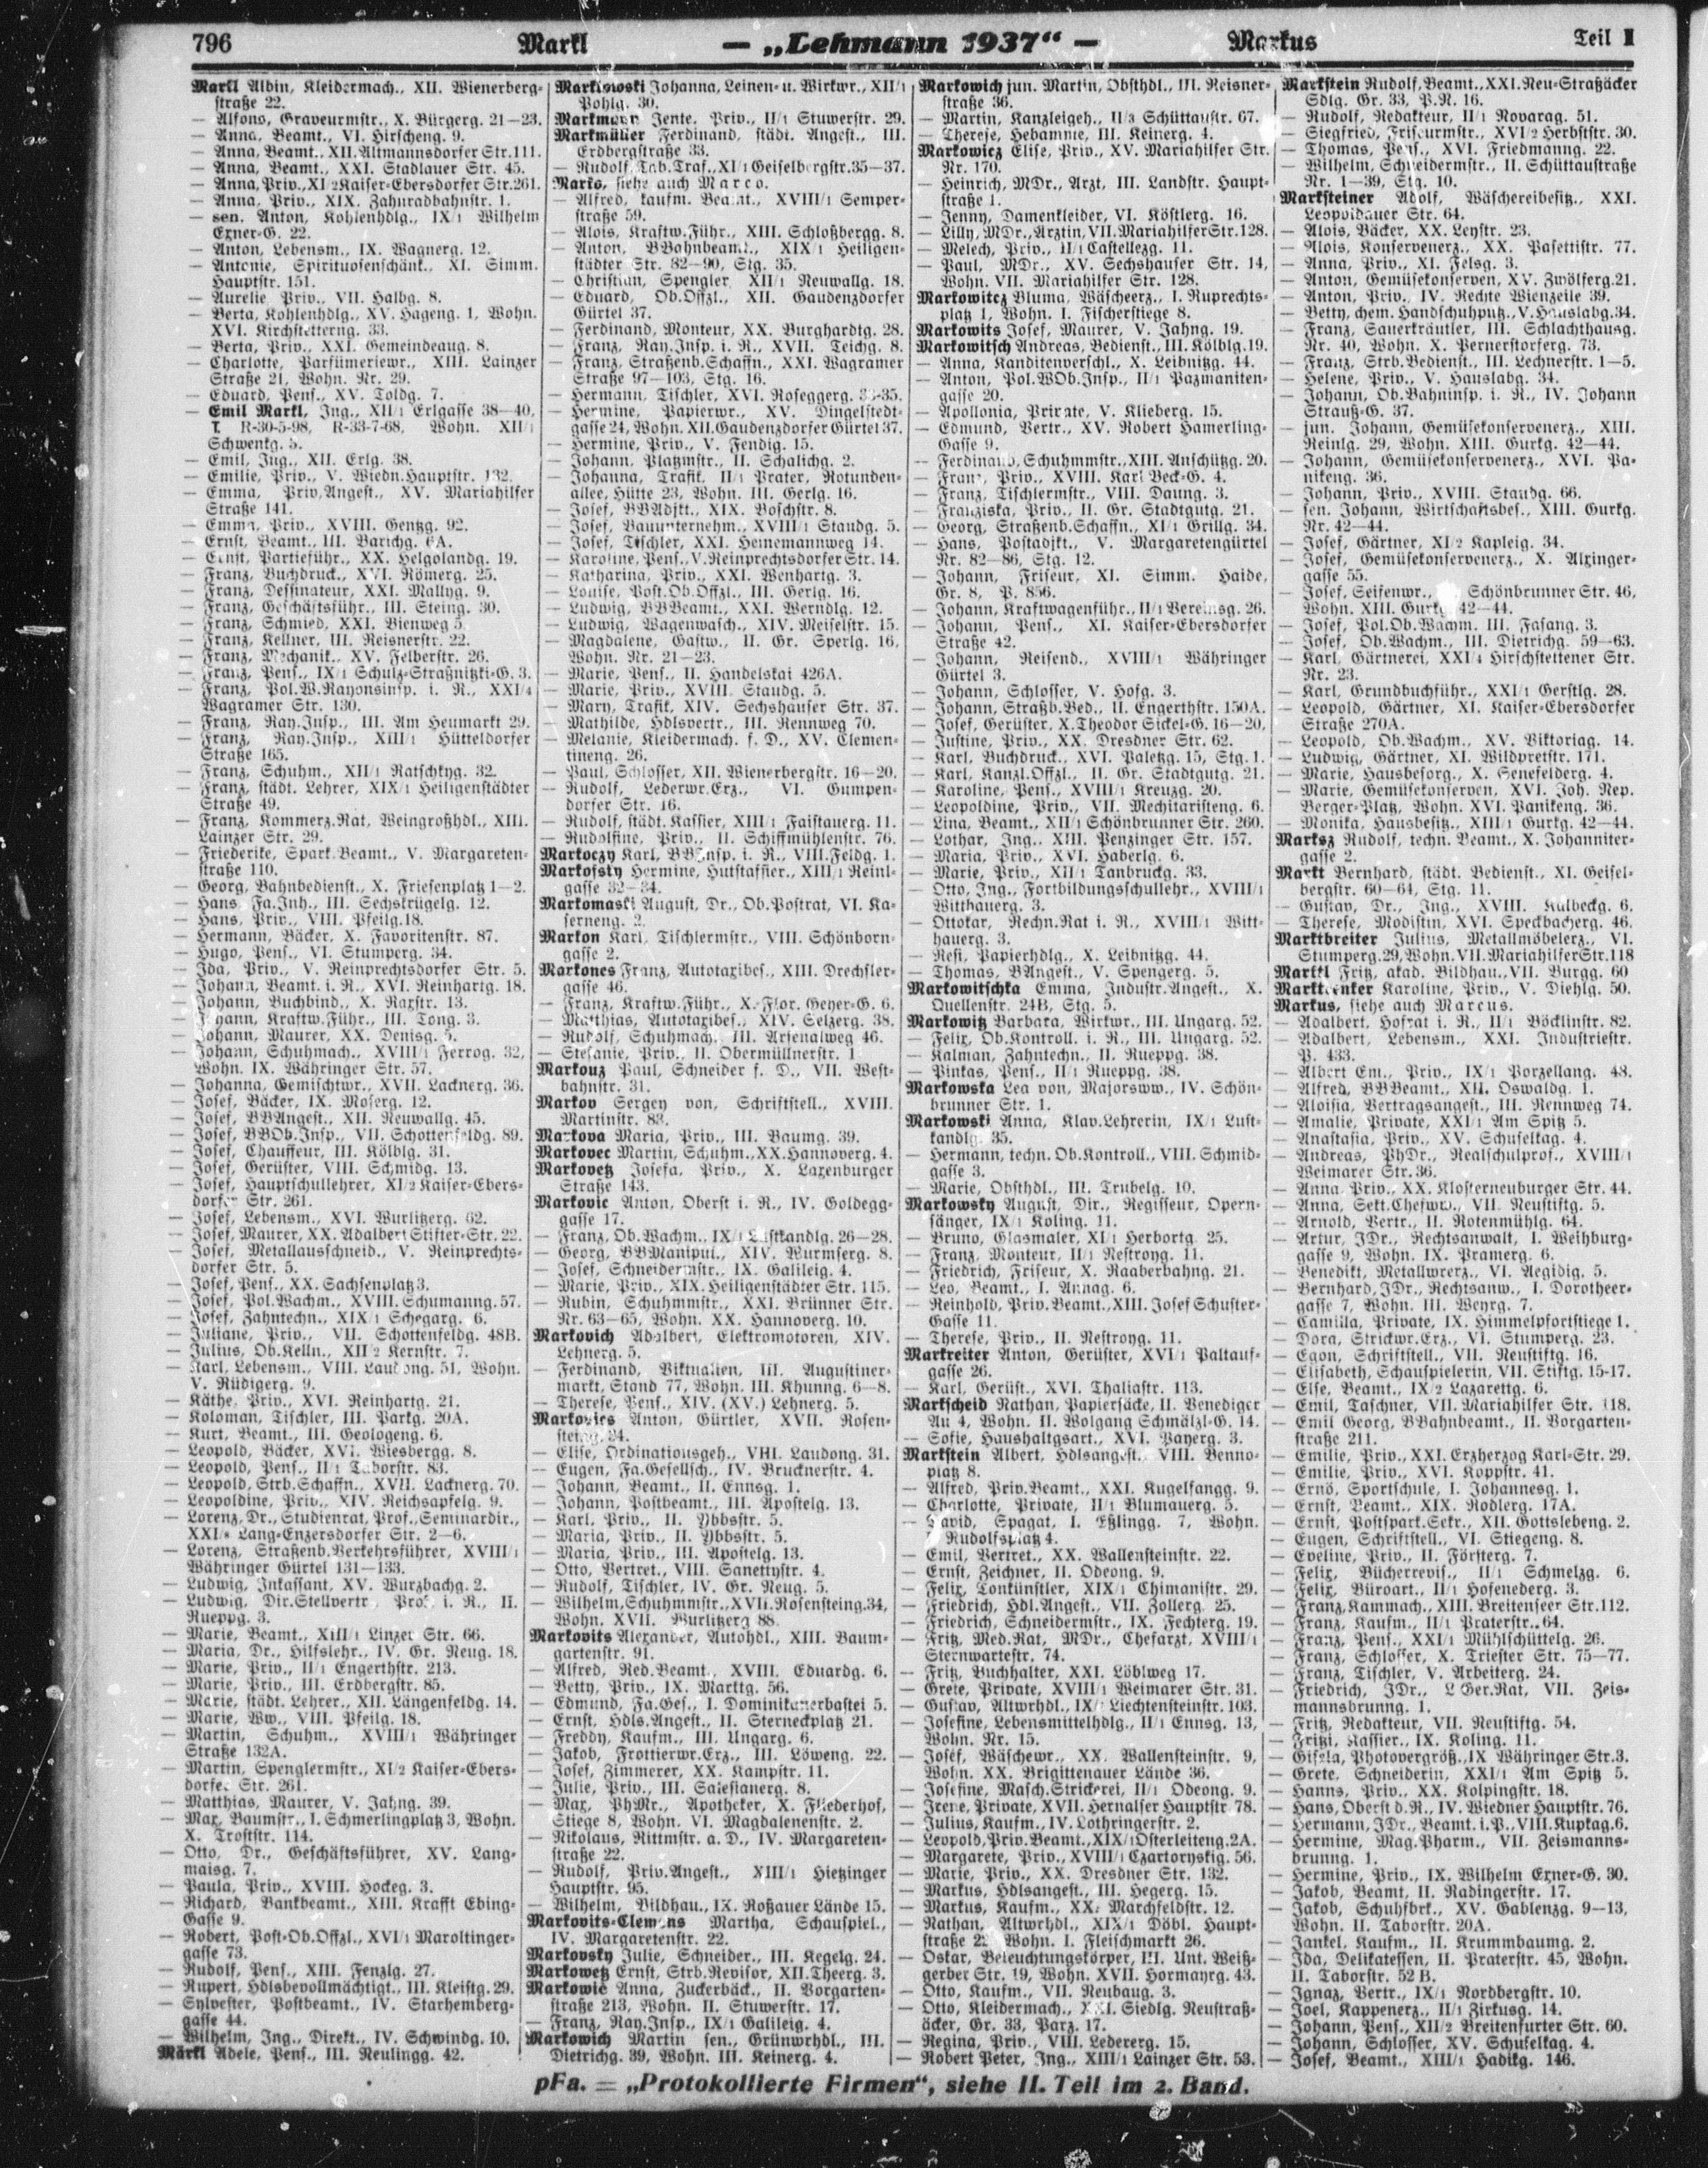 796 Markl — „Lehmann 1937“ — Markus Teil I
Markl Albin, Kleidermach., XII. Wienerberg-
straße 22.
— Alfons, Graveurmstr., X. Bürgerg. 21—23.
— Anna, Beamt., VI. Hirscheng. 9.
— Anna, Beamt., XII. Altmannsdorfer Str. 111.
— Anna, Beamt., XXI. Stadlauer Str. 45.
— Anna, Priv., XI/2 Kaiser-Ebersdorfer Str. 261.
— Anna, Priv., XIX. Zahnradbahnstr. 1.
— sen. Anton, Kohlenhdlg., IX/1 Wilhelm
Exner-G. 22.
— Anton, Lebensm., IX. Wagnerg. 12.
— Antonie, Spirituosenschänk., XI. Simm.
Hauptstr. 151.
— Aurelie, Priv., VII. Halbg. 8.
— Berta, Kohlenhdlg., XV. Hageng. 1, Wohn.
XVI. Kirchstetterng. 33.
— Berta, Priv., XXI. Gemeindeaug. 8.
— Charlotte, Parfümeriewr., XIII. Lainzer
Straße 21, Wohn. Nr. 29.
— Eduard, Pens., XV. Toldg. 7.
— Emil Markl, Ing., XII/1 Erlgasse 38—40,
T. R-30-5-98, R-33-7-68, Wohn. XII/1
Schwenkg. 5.
— Emil, Ing., XII. Erlg. 38.
— Emilie, Priv., V. Wiedn. Hauptstr. 132.
— Emma, Priv. Angest., XV. Mariahilfer
Straße 141.
— Emma, Priv., XVIII. Gentzg. 92.
— Ernst, Beamt., III. Barichg. 6A.
— Ernst, Partieführ., XX. Helgolandg. 19.
— Franz, Buchdruck., XVI. Römerg. 25.
— Franz, Dessinateur, XXI. Mallyg. 9.
— Franz, Geschäftsführ., III. Steing. 30.
— Franz, Schmied, XXI. Bienweg 5.
— Franz, Kellner, III. Reisnerstr. 22.
— Franz, Mechanik., XV. Felberstr. 26.
— Franz, Pens., IX/1 Schulz-Straßnitzki-G. 3.
— Franz, Pol.W.Rayonsinsp. i. R., XXI/4
Wagramer Str. 130.
— Franz, Ray.Insp., III. Am Heumarkt 29.
— Franz, Ray.Insp., XIII/1 Hütteldorfer
Straße 165.
— Franz, Schuhm., XII/1 Ratschkyg. 32.
— Franz, städt. Lehrer, XIX/1 Heiligenstädter
Straße 49.
— Franz, Kommerz.Rat, Weingroßhdl., XIII.
Lainzer Str. 29.
— Friederike, Spark.Beamt., V. Margareten-
straße 110.
— Georg, Bahnbedienst., X. Friesenplatz 1—2.
— Hans, Fa.Inh., III. Sechskrügelg. 12.
— Hans, Priv., VIII. Pfeilg. 18.
— Hermann, Bäcker, X. Favoritenstr. 87.
— Hugo, Pens., VI. Stumperg. 34.
— Ida, Priv., V. Reinprechtsdorfer Str. 5.
— Johann, Beamt. i. R., XVI. Reinhartg. 18.
— Johann, Buchbind., X. Raxstr. 13.
— Johann, Kraftw.Führ., III. Tong. 3.
— Johann, Maurer, XX. Denisg. 5.
— Johann, Schuhmach., XVIII/1 Ferrog. 32,
Wohn. IX. Währinger Str. 57.
— Johanna, Gemischtwr., XVII. Lacknerg. 36.
— Josef, Bäcker, IX. Moserg. 12.
— Josef, BBAngest., XII. Neuwallg. 45.
— Josef, BBOb.Insp., VII. Schottenfeldg. 89.
— Josef, Chauffeur, III. Kölblg. 31.
— Josef, Gerüster, VIII. Schmidg. 13.
— Josef, Hauptschullehrer, XI/2 Kaiser-Ebers-
dorfer Str. 261.
— Josef, Lebensm., XVI. Wurlitzerg. 62.
— Josef, Maurer, XX. Adalbert Stifter-Str. 22.
— Josef, Metallausschneid., V. Reinprechts-
dorfer Str. 5.
— Josef, Pens., XX. Sachsenplatz 3.
— Josef, Pol.Wachm., XVIII. Schumanng. 57.
— Josef, Zahntechn., XIX/1 Schegarg. 6.
— Juliane, Priv., VII. Schottenfeldg. 48B.
— Julius, Ob.Kelln., XII/2 Kernstr. 7.
— Karl, Lebensm., VIII. Laudong. 51, Wohn.
V. Rüdigerg. 9.
— Käthe, Priv., XVI. Reinhartg. 21.
— Koloman, Tischler, III. Parkg. 20A.
— Kurt, Beamt., III. Geologeng. 6.
— Leopold, Bäcker, XVI. Wiesbergg. 8.
— Leopold, Pens., II/1 Taborstr. 83.
— Leopold, Strb.Schaffn., XVII. Lacknerg. 70.
— Leopoldine, Priv., XIV. Reichsapfelg. 9.
— Lorenz, Dr., Studienrat, Prof., Seminardir.,
Lang-Enzersdorfer Str. 2—6.
— Lorenz, Straßenb.Verkehrsführer, XVIII/1
Währinger Gürtel 131—133.
— Ludwig, Inkassant, XV. Wurzbachg. 2.
— Ludwig, Dir.Stellvertr. Prof. i. R., II.
Rueppg. 3.
— Marie, Beamt., XIII/1 Linzer Str. 66.
— Maria, Dr., Hilfslehr., IV. Gr. Neug. 18.
— Marie, Priv., II/1 Engerthstr. 213.
— Marie, Priv., III. Erdbergstr. 85.
— Marie, städt. Lehrer., XII. Längenfeldg. 14.
— Marie, Ww., VIII. Pfeilg. 18.
— Martin, Schuhm., XVIII/1 Währinger
Straße 132A.
— Martin, Spenglermstr., XI/2 Kaiser-Ebers-
dorfer Str. 261.
— Matthias, Maurer, V. Jahng. 39.
— Max, Baumstr., I. Schmerlingplatz 3, Wohn.
X. Troststr. 114.
— Otto, Dr., Geschäftsführer, XV. Lang-
maisg. 7.
— Paula, Priv., XVIII. Hockeg. 3.
— Richard, Bankbeamt., XIII. Krafft Ebing-
Gasse 9.
— Robert, Post-Ob.Offzl., XVI/1 Maroltinger-
gasse 73.
— Rudolf, Pens., XIII. Fenzlg. 27.
— Rupert, Hdlsbevollmächtigt., III. Kleistg. 29.
— Sylvester, Postbeamt., IV. Starhemberg-
gasse 44.
— Wilhelm, Ing., Direkt., IV. Schwindg. 10.
Märkl Adele, Pens., III. Neulingg. 42.
Marklowski Johanna, Leinen- u. Wirkwr., XII/1
Pohlg. 30.
Markmann Jente, Priv., II/1 Stuwerstr. 29.
Markmüller Ferdinand, städt. Angest., III.
Erdbergstraße 33.
— Rudolf, Tab.Traf., XI/1 Geiselbergstr. 35—37.
Marko, siehe auch Marco.
— Alfred, kaufm. Beamt., XVIII/1 Semper-
straße 59.
— Alois, Kraftw.Führ., XIII. Schloßbergg. 8.
— Anton, BBahnbeamt., XIX/1 Heiligen-
städter Str. 82—90, Stg. 35.
— Christian, Spengler, XII/1 Neuwallg. 18.
— Eduard, Ob.Offzl., XII. Gaudenzdorfer
Gürtel 37.
— Ferdinand, Monteur, XX. Burghardtg. 28.
— Franz, Ray.Insp. i. R., XVII. Teichg. 8.
— Franz, Straßenb.Schaffn., XXI. Wagramer
Straße 97—103, Stg. 16.
— Hermann, Tischler, XVI. Roseggerg. 33-35.
— Hermine, Papierwr., XV. Dingelstedt-
gasse 24, Wohn. XII. Gaudenzdorfer Gürtel 37.
— Hermine, Priv., V. Fendig. 15.
— Johann, Platzmstr., II. Schalichg. 2.
— Johanna, Trafik, II/1 Prater, Rotunden-
allee, Hütte 23, Wohn. III. Gerlg. 16.
— Josef, BBAdjkt., XIX. Boschstr. 8.
— Josef, Bauunternehm., XVIII/1 Staudg. 5.
— Josef, Tischler, XXI. Heinemannweg 14.
— Karoline, Pens., V. Reinprechtsdorfer Str. 14.
— Katharina, Priv., XXI. Wenhartg. 3.
— Louise, Post.Ob.Offzl., III. Gerlg. 16.
— Ludwig, BBBeamt., XXI. Werndlg. 12.
— Ludwig, Wagenwasch., XIV. Meiselstr. 15.
— Magdalene, Gastw., II. Gr. Sperlg. 16,
Wohn. Nr. 21—23.
— Marie, Pens., II. Handelskai 426A.
— Marie, Priv., XVIII. Staudg. 5.
— Mary, Trafik, XIV. Sechshauser Str. 37.
— Mathilde, Hdlsvertr., III. Rennweg 70.
— Melanie, Kleidermach. f. D., XV. Clemen-
tineng. 26.
— Paul, Schlosser, XII. Wienerbergstr. 16—20.
— Rudolf, Lederwr.Erz., VI. Gumpen-
dorfer Str. 16.
— Rudolf, städt. Kassier, XIII/1 Faistauerg. 11.
— Rudolfine, Priv., II. Schiffmühlenstr. 76.
Markoczy Karl, BBInsp. i. R., VIII. Feldg. 1.
Markofsky Hermine, Hutstaffier., XIII/1 Reinl-
gasse 32—34.
Markomaski August, Dr., Ob.Postrat, VI. Ka-
serneng. 2.
Markon Karl, Tischlermstr., VIII. Schönborn-
gasse 2.
Markones Franz, Autotaxibes., XIII. Drechsler-
gasse 46.
— Franz, Kraftw.Führ., X. Flor. Geyer-G. 6.
— Matthias, Autotaxibes., XIV. Selzerg. 38.
— Rudolf, Schuhmach., III. Arsenalweg 46.
— Stefanie, Priv., II. Obermüllnerstr. 1
Markouz Paul, Schneider f. D., VII. West-
bahnstr. 31.
Markov Sergey von, Schriftstell., XVIII.
Martinstr. 83.
Markova Maria, Priv., III. Baumg. 39.
Markovec Martin, Schuhm., XX. Hannoverg. 4.
Markovetz Josefa, Priv., X. Laxenburger
Straße 143.
Markovic Anton, Oberst i. R., IV. Goldegg-
gasse 17.
— Franz, Ob.Wachm., IX/1 Lustkandlg. 26—28.
— Georg, BBManipul., XIV. Wurmserg. 8.
— Josef, Schneidermstr., IX. Galileig. 4.
— Marie, Priv., XIX. Heiligenstädter Str. 115.
— Rubin, Schuhmmstr., XXI. Brünner Str.
Nr. 63—65, Wohn. XX. Hannoverg. 10.
Markovich Adalbert, Elektromotoren, XIV.
Lehnerg. 5.
— Ferdinand, Viktualien, III. Augustiner-
markt, Stand 77, Wohn. III. Khunng. 6—8.
— Therese, Pens., XIV. (XV.) Lehnerg. 5.
Markovics Anton, Gürtler, XVII. Rosen-
steing. 34.
— Elise, Ordinationsgeh., VIII. Laudong. 31.
— Eugen, Fa.Gesellsch., IV. Brucknerstr. 4.
— Johann, Beamt., II. Ennsg. 1.
— Johann, Postbeamt., III. Apostelg. 13.
— Karl, Priv., II. Ybbsstr. 5.
— Maria, Priv., II. Ybbsstr. 5.
— Maria, Priv., III. Apostelg. 13.
— Otto, Vertret., VIII. Sanettystr. 4.
— Rudolf, Tischler, IV. Gr. Neug. 5.
— Wilhelm, Schuhmmstr., XVII. Rosensteing. 34,
Wohn. XVII. Wurlitzerg. 88.
Markovits Alexander, Autohdl., XIII. Baum-
gartenstr. 91.
— Alfred, Red.Beamt., XVIII. Eduardg. 6.
— Betty, Priv., IX. Marktg. 56.
— Edmund, Fa.Ges., I. Dominikanerbastei 5.
— Ernst, Hdls.Angest., II. Sterneckplatz 21.
— Freddy, Kaufm., III. Ungarg. 6.
— Jakob, Frottierwr.Erz., III. Löweng. 22.
— Josef, Zimmerer, XX. Kampstr. 11.
— Julie, Priv., III. Salesianerg. 8.
— Max, PhMr., Apotheker, X. Fliederhof,
Stiege 8, Wohn. VI. Magdalenenstr. 2.
— Nikolaus, Rittmstr. a. D., IV. Margareten-
straße 22.
— Rudolf, Priv.Angest., XIII/1 Hietzinger
Hauptstr. 95.
— Wilhelm, Bildhau., IX. Roßauer Lände 15.
Markovits-Clemens Martha, Schauspiel.,
IV. Margaretenstr. 22.
Markovsky Julie, Schneider., III. Kegelg. 24.
Markowetz Ernst, Strb.Revisor, XII. Theerg. 3.
Markowic Anna, Zuckerbäck., II. Vorgarten-
straße 213, Wohn. II. Stuwerstr. 17.
— Franz, Ray.Insp., IX/1 Galileig. 4.
Markowich Martin sen., Grünwrhdl., III.
Dietrichg. 39, Wohn. III. Keinerg. 4.
Markowich jun. Martin, Obsthdl., III. Reisner-
straße 36.
— Martin, Kanzleigeh., II/3 Schüttaustr. 67.
— Therese, Hebamme, III. Keinerg. 4.
Markowicz Elise, Priv., XV. Mariahilfer Str.
Nr. 170.
— Heinrich, MDr., Arzt, III. Landstr. Haupt-
straße 1.
— Jenny, Damenkleider, VI. Köstlerg. 16.
— Lilly, MDr., Ärztin, VII. Mariahilfer Str. 128.
— Melech, Priv., II/1 Castellezg. 11.
— Paul, MDr., XV. Sechshauser Str. 14,
Wohn. VII. Mariahilfer Str. 128.
Markowitcz Bluma, Wäscheerz., I. Ruprechts-
platz 1, Wohn. I. Fischerstiege 8.
Markowits Josef, Maurer, V. Jahng. 19.
Markowitsch Andreas, Bedienst., III. Kölblg. 19.
— Anna, Kanditenverschl., X. Leibnitzg. 44.
— Anton, Pol.WOb.Insp., II/1 Pazmaniten-
gasse 20.
— Apollonia, Private, V. Klieberg. 15.
— Edmund, Vertr., XV. Robert Hamerling-
Gasse 9.
— Ferdinand, Schuhmmstr., XIII. Anschützg. 20.
— Franz, Priv., XVIII. Karl Beck-G. 4.
— Franz, Tischlermstr., VIII. Daung. 3.
— Franziska, Priv., II. Gr. Stadtgutg. 21.
— Georg, Straßenb.Schaffn., XI/1 Grillg. 34.
— Hans, Postadjkt., V. Margaretengürtel
Nr. 82—86, Stg. 12.
— Johann, Friseur, XI. Simm. Haide,
Gr. 8, P. 856.
— Johann, Kraftwagenführ., II/1 Vereinsg. 26.
— Johann, Pens., XI. Kaiser-Ebersdorfer
Straße 42.
— Johann, Reisend., XVIII/1 Währinger
Gürtel 3.
— Johann, Schlosser, V. Hofg. 3.
— Johann, Straßb.Bed., II. Engerthstr. 150A.
— Josef, Gerüster, X. Theodor Sickel-G. 16—20,
— Justine, Priv., XX. Dresdner Str. 62.
— Karl, Buchdruck., XVI. Paletzg. 15, Stg. 1.
— Karl, Kanzl.Offzl., II. Gr. Stadtgutg. 21.
— Karoline, Pens., XVIII/1 Kreuzg. 20.
— Leopoldine, Priv., VII. Mechitaristeng. 6.
— Lina, Beamt., XII/1 Schönbrunner Str. 260.
— Lothar, Ing., XIII. Penzinger Str. 157.
— Maria, Priv., XVI. Haberlg. 6.
— Marie, Priv., XII/1 Tanbruckg. 33.
— Otto, Ing., Fortbildungsschullehr., XVIII/1
Witthauerg. 3.
— Ottokar, Rechn.Rat i. R., XVIII/1 Witt-
hauerg. 3.
— Resi, Papierhdlg., X. Leibnitzg. 44.
— Thomas, BAngest., V. Spengerg. 5.
Markowitschka Emma, Industr.Angest., X.
Quellenstr. 24B, Stg. 5.
Markowitz Barbara, Wirkwr., III. Ungarg. 52.
— Felix, Ob.Kontroll. i. R., III. Ungarg. 52.
— Kalman, Zahntechn., II. Rueppg. 38.
— Pinkas, Pens., II/1 Rueppg. 38.
Markowska Lea von, Majorsww., IV. Schön-
brunner Str. 1.
Markowski Anna, Klav.Lehrerin, IX/1 Lust-
kandlg. 35.
— Hermann, techn. Ob.Kontroll., VIII. Schmid-
gasse 3.
— Marie, Obsthdl., III. Trubelg. 10.
Markowsky August, Dir., Regisseur, Opern-
sänger, IX/1 Koling. 11.
— Bruno, Glasmaler, XI/1 Herbortg. 25.
— Franz, Monteur, II/1 Nestroyg. 11.
— Friedrich, Friseur, X. Raaberbahng. 21.
— Leo, Beamt., I. Annag. 6.
— Reinhold, Priv.Beamt., XIII. Josef Schuster-
Gasse 11.
— Therese, Priv., II. Nestroyg. 11.
Markreiter Anton, Gerüster, XVI/1 Paltauf-
gasse 26.
— Karl, Gerüst., XVI. Thaliastr. 113.
Markscheid Nathan, Papiersäcke, II. Venediger
Au 4, Wohn. II. Wolgang Schmälzl-G. 14.
— Sofie, Haushaltgsart., XVI. Payerg. 3.
Markstein Albert, Hdlsangest., VIII. Benno-
platz 8.
— Alfred, Priv.Beamt., XXI. Kugelfangg. 9.
— Charlotte, Private, II/1 Blumauerg. 5.
— David, Spagat, I. Eßlingg. 7, Wohn.
Rudolfsplatz 4.
— Emil, Vertret., XX. Wallensteinstr. 22.
— Ernst, Zeichner, II. Odeong. 9.
— Felix, Tonkünstler, XIX/1 Chimanistr. 29.
— Friedrich, Hdl.Angest., VII. Zollerg. 25.
— Friedrich, Schneidermstr., IX. Fechterg. 19.
— Fritz, Med.Rat, MDr., Chefarzt, XVIII/1
Sternwartestr. 74.
— Fritz, Buchhalter, XXI. Löblweg 17.
— Grete, Private, XVIII/1 Weimarer Str. 31.
— Gustav, Altwrhdl., IX/2 Liechtensteinstr. 103.
— Josefine, Lebensmittelhdlg., II/1 Ennsg. 13,
Wohn. Nr. 15.
— Josef, Wäschewr., XX. Wallensteinstr. 9,
Wohn. XX. Brigittenauer Lände 36.
— Josefine, Masch.Strickerei, II/1 Odeong. 9.
— Irene, Private, XVII. Hernalser Hauptstr. 78.
— Julius, Kaufm., IV. Lothringerstr. 2.
— Leopold, Priv.Beamt., XIX/1 Osterleiteng. 2A.
— Margarete, Priv., XVIII/1 Czartoryskig. 56.
— Marie, Priv., XX. Dresdner Str. 132.
— Markus, Hdlsangest., III. Hegerg. 15.
— Markus, Kaufm., XX. Marchfeldstr. 12.
— Nathan, Altwrhdl., XIX/1 Döbl. Haupt-
straße Wohn. I. Fleischmarkt 26.
— Oskar, Beleuchtungskörper, III. Unt. Weiß-
gerber Str. 19, Wohn. XVII. Hormayrg. 43.
— Otto, Kaufm., VII. Neubaug. 3.
— Otto, Kleidermach., XXI. Siedlg. Neustraß-
äcker, Gr. 33, Parz. 17.
— Regina, Priv., VIII. Ledererg. 15.
— Robert Peter, Ing., XIII/1 Lainzer Str. 53.
Markstein Rudolf, Beamt., XXI. Neu-Straßäcker
Sdlg. Gr. 33, P.N. 16.
— Rudolf, Redakteur, II/1 Novarag. 51.
— Siegfried, Friseurmstr., XVI/2 Herbststr. 30.
— Thomas, Pens., XVI. Friedmanng. 22.
— Wilhelm, Schneidermstr., II. Schüttaustraße
Nr. 1—39, Stg. 10.
Marksteiner Adolf, Wäschereibesitz., XXI.
Leopoldauer Str. 64.
— Alois, Bäcker, XX. Leystr. 23.
— Alois, Konservenerz., XX. Pasettistr. 77.
— Anna, Priv., XI. Felsg. 3.
— Anton, Gemüsekonserven, XV. Zwölferg. 21.
— Anton, Priv., IV. Rechte Wienzeile 39.
— Betty, chem. Handschuhputz., V. Hauslabg. 34.
— Franz, Sauerkräutler, III. Schlachthausg.
Nr. 40, Wohn. X. Pernerstorferg. 73.
— Franz, Strb.Bedienst., III. Lechnerstr. 1—5.
— Helene, Priv., V. Hauslabg. 34.
— Johann, Ob.Bahninsp. i. R., IV. Johann
Strauß-G. 37.
— jun. Johann, Gemüsekonservenerz., XIII.
Reinlg. 29, Wohn. XIII. Gurkg. 42—44.
— Johann, Gemüsekonservenerz., XVI. Pa-
nikeng. 36.
— Johann, Priv., XVIII. Staudg. 66.
— sen. Johann, Wirtschaftsbes., XIII. Gurkg.
Nr. 42—44.
— Josef, Gärtner, XI/2 Kapleig. 34.
— Josef, Gemüsekonservenerz., X. Alxinger-
gasse 55.
— Josef, Seifenwr., Schönbrunner Str. 46,
Wohn. XIII. Gurkg. 42—44.
— Josef, Pol.Ob.Wachm. III. Fasang. 3.
— Josef, Ob.Wachm., III. Dietrichg. 59—63.
— Karl, Gärtnerei, XXI/4 Hirschstettener Str.
Nr. 23.
— Karl, Grundbuchführ., XXI/1 Gerstlg. 28.
— Leopold, Gärtner, XI. Kaiser-Ebersdorfer
Straße 270A.
— Leopold, Ob.Wachm., XV. Viktoriag. 14.
— Ludwig, Gärtner, XI. Wildpretstr. 171.
— Marie, Hausbesorg., X. Senefelderg. 4.
— Marie, Gemüsekonserven, XVI. Joh. Nep.
Berger-Platz, Wohn. XVI. Panikeng. 36.
— Monika, Hausbesitz., XIII/1 Gurkg. 42—44.
Marksz Rudolf, techn. Beamt., X. Johanniter-
gasse 2.
Markt Bernhard, städt. Bedienst., XI. Geisel-
bergstr. 60—64, Stg. 11.
— Gustav, Dr., Ing., XVIII. Kalbeckg. 6.
— Therese, Modistin, XVI. Speckbacherg. 46.
Marktbreiter Julius, Metallmöbelerz., VI.
Stumperg. 29, Wohn. VII. Mariahilfer Str. 118
Marktl Fritz, akad. Bildhau., VII. Burgg. 60
Karoline, Priv., V. Diehlg. 50.
Markus, siehe auch Marcus.
— Adalbert, Hofrat i. R., II/1 Böcklinstr. 82.
— Adalbert, Lebensm., XXI. Industriestr.
P. 433.
— Albert Em., Priv., IX/1 Porzellang. 48.
— Alfred, BBBeamt., XII. Oswaldg. 1.
— Aloisia, Vertragsangest., III. Rennweg 74.
— Amalie, Private, XXI/1 Am Spitz 5.
— Anastasia, Priv., XV. Schuselkag. 4.
— Andreas, PhDr., Realschulprof., XVIII/1
Weimarer Str. 36.
— Anna, Priv., XX. Klosterneuburger Str. 44.
— Anna, Sekt.Chefsww., VII. Neustiftg. 5.
— Arnold, Vertr., II. Rotenmühlg. 64.
— Artur, JDr., Rechtsanwalt, I. Weihburg-
gasse 9, Wohn. IX. Pramerg. 6.
— Benedikt, Metallwrerz., VI. Aegidig. 5.
— Bernhard, JDr., Rechtsanw., I. Dorotheer-
gasse 7, Wohn. III. Weyrg. 7.
— Camilla, Private, IX. Himmelpfortstiege 1.
— Dora, Strickwr.Erz., VI. Stumperg. 23.
— Egon, Schriftstell., VII. Neustiftg. 16.
— Elisabeth, Schauspielerin, VII. Stiftg. 15-17.
— Else, Beamt., IX/2 Lazarettg. 6.
— Emil, Taschner, VII. Mariahilfer Str. 118.
— Emil Georg, BBahnbeamt., II. Vorgarten-
straße 211.
— Emilie, Priv., XXI. Erzherzog Karl-Str. 29.
— Emilie, Priv., XVI. Koppstr. 41.
— Ernö, Sportschule, I. Johannesg. 1.
— Ernst, Beamt., XIX. Rodlerg. 17A.
— Ernst, Postspark.Sekr., XII. Gottslebeng. 2.
— Eugen, Schriftstell., VI. Stiegeng. 8.
— Eveline, Priv., II. Försterg. 7.
— Felix, Bücherrevis., II/1 Schmelzg. 6.
— Felix, Büroart., II/1 Hofenederg. 3.
— Franz, Kammach., XIII. Breitenseer Str. 112.
— Franz, Kaufm., II/1 Praterstr. 64.
— Franz, Pens., XXI/1 Mühlschüttelg. 26.
— Franz, Schlosser, X. Triester Str. 75—77.
— Franz, Tischler, V. Arbeiterg. 24.
— Friedrich, JDr., LGer.Rat, VII. Zeis-
mannsbrunng. 1.
— Fritz, Redakteur, VII. Neustiftg. 54.
— Fritzi, Kassier., IX. Koling. 11.
— Gisela, Photovergröß., IX Währinger Str. 3.
— Grete, Schneiderin, XXI/1 Am Spitz 5.
— Hanns, Priv., XX. Kolpingstr. 18.
— Hans, Oberst d. R., IV. Wiedner Hauptstr. 76.
— Hermann, JDr., Beamt. i. P., VIII. Kupkag. 6.
— Hermine, Mag.Pharm., VII. Zeismanns-
brunng. 1.
— Hermine, Priv., IX. Wilhelm Exner-G. 30.
— Jakob, Beamt., II. Radingerstr. 17.
— Jakob, Schuhfbrk., XV. Gablenzg. 9—13,
Wohn. II. Taborstr. 20A.
— Jankel, Kaufm., II. Krummbaumg. 2.
— Ida, Delikatessen, II. Praterstr. 45, Wohn.
II. Taborstr. 52B.
— Ignaz, Vertr., IX/1 Nordbergstr. 10.
— Joel, Kappenerz., II/1 Zirkusg. 14.
— Johann, Pens., XII/2 Breitenfurter Str. 60.
— Johann, Schlosser, XV. Schuselkag. 4.
— Josef, Beamt., XIII/1 Hadikg. 146.
pFa. = „Protokollierte Firmen“, siehe II. Teil im 2. Band.